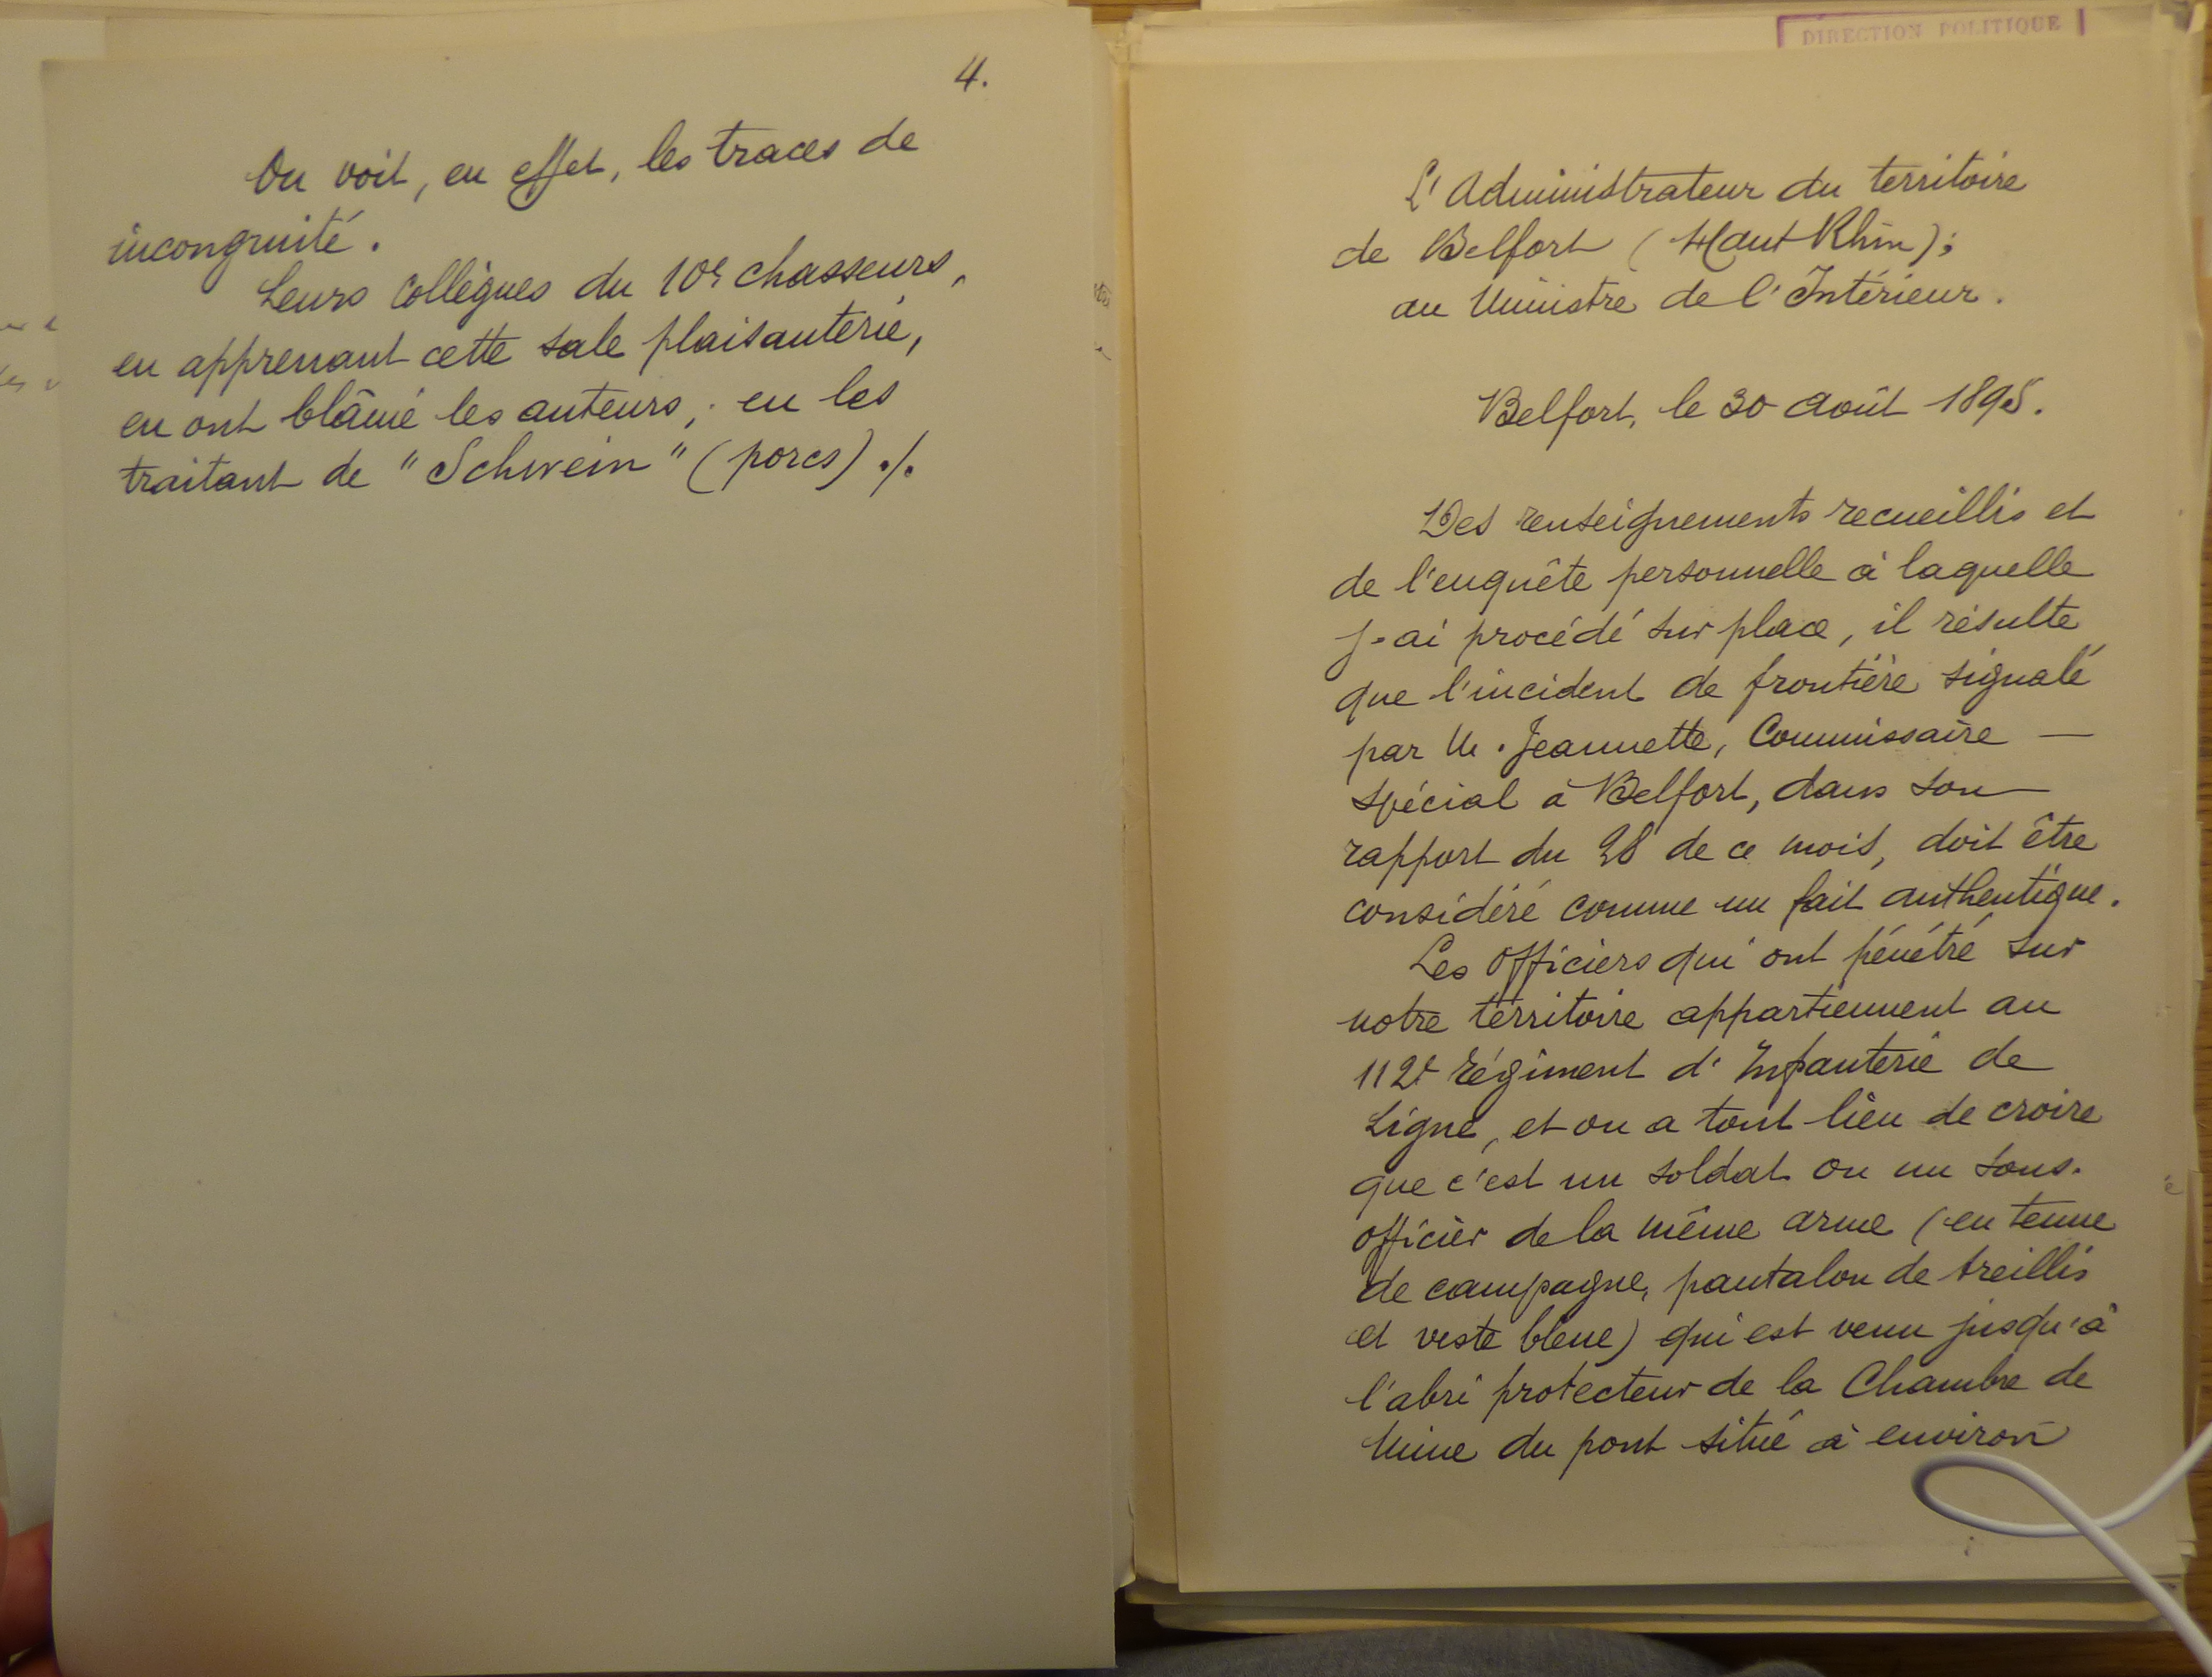 4.
On voit, en effet, les traces de
incongruité.
Leurs Collègues du 10e chasseurs,
en apprenant cette sale plaisanterie,
en ont blâmé les auteurs, en les
traitant de "Schwein" (porcs) ./.
DIRECTION POLITIQUE
L'Administrateur du territoire
de Belfort (Haut Rhin);
au Ministre de l'Intérieur.
Belfort, le 30 août 1895.
Des renseignements recueillis et
de l'enquête personnelle à laquelle
j'ai procédé sur place, il résulte
que l'incident de frontière signalé
par M. Jeannette, Commissaire —
spécial à Belfort, dans son
rapport du 28 de ce mois, doit être
considéré comme un fait authentique.
Les Officiers qui ont pénétré sur
notre territoire appartiennent au
112e régiment d'Infanterie de
Ligne, et on a tout lieu de croire
que c'est un soldat ou un sous-
officier de la même arme (en tenue
de campagne, pantalon de treillis
et veste bleue) qui est venu jusqu'à
l'abri protecteur de la Chambre de
Mine du pont situé à environ